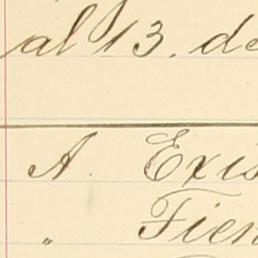 al 13. de
A. Exis
" Tien